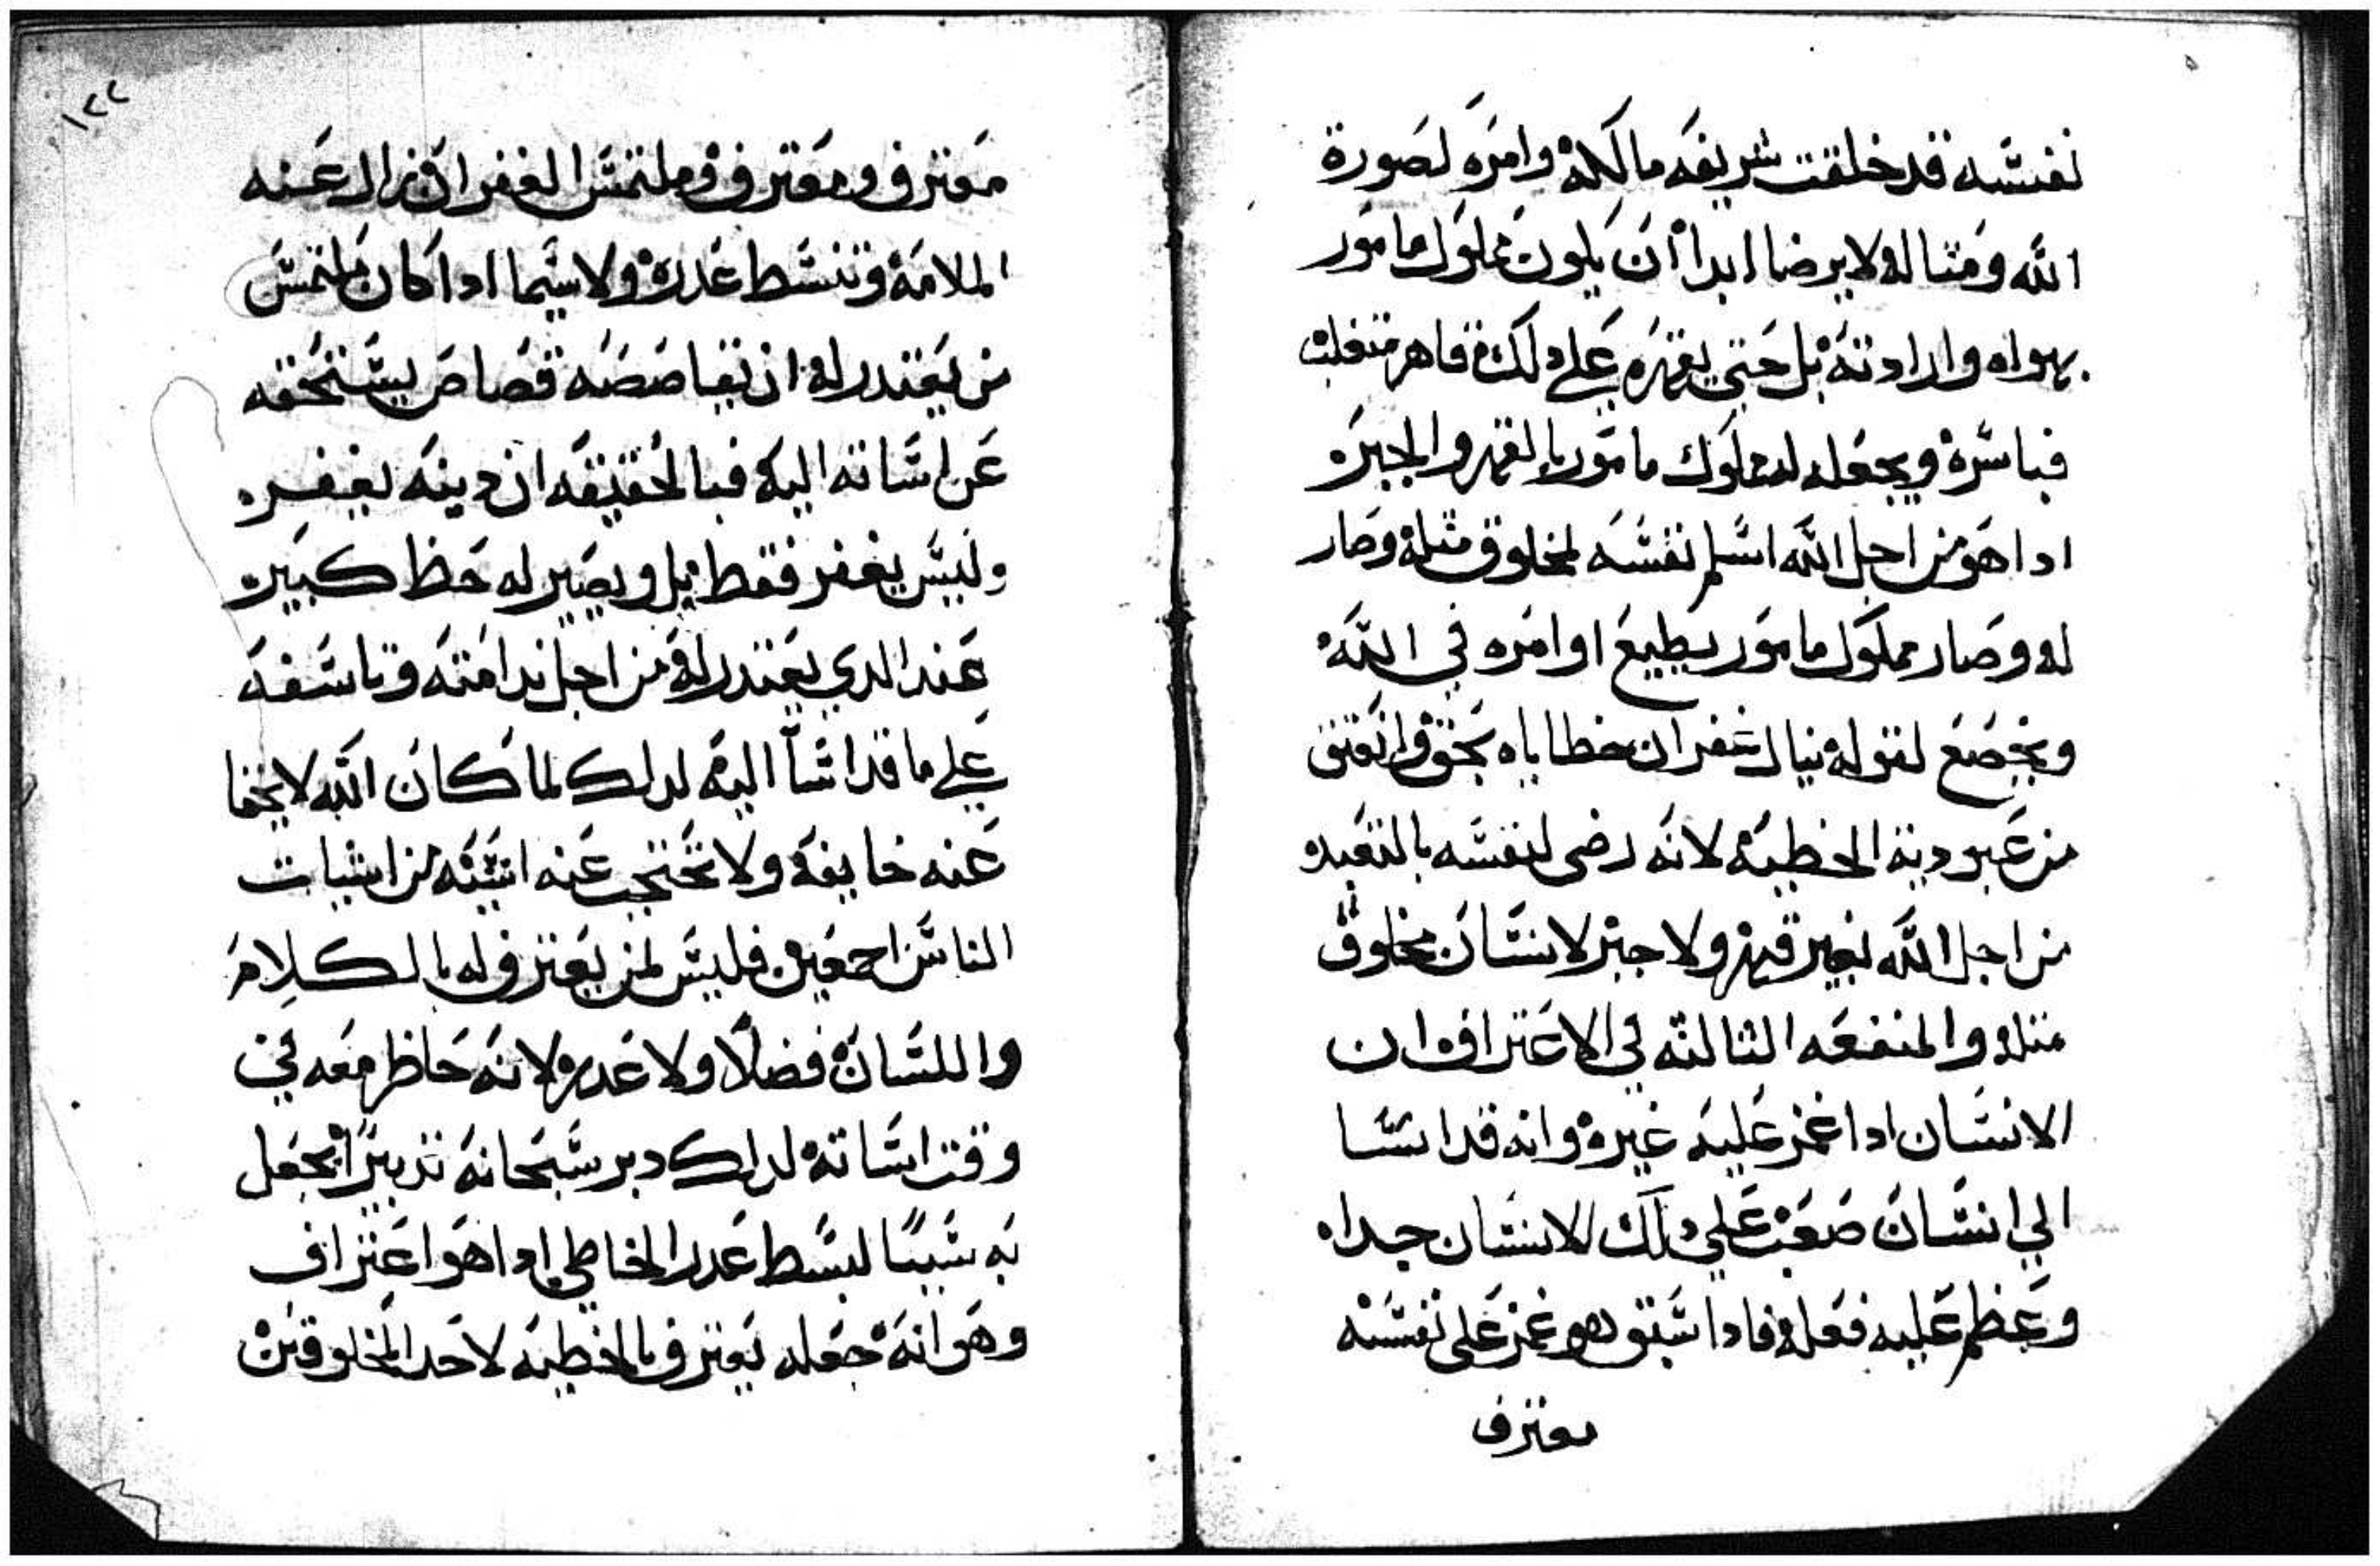 نفسه قد خلقت شريفه مالكه وامره لصورة
الله ومتاله لايرضا ابدا ان يكون مملوك مامور
بهواه وارادته بل حتي يقهره علي دلك قاهر متغلب
فباسره ويجعله له مملوك مامور بالقهر والجبره
اداهو من اجل الله اسلم نفسه لمخلوق متله وصار
له وصار مملوك مامور يطيع اوامره في الله
ويخضع لقوله نيال غفران خطاياه بحق وانعتق
من عبودية الخطيه لانه رضى لنفسه بالتعبد
من اجل الله بغير قهر ولا جبر لانسان مخلوق
متله والمنفعه التالته في الاعتراف ان
الانسان ادا غمز عليه غيره وانه قد اسا
الي انسان صعب علي دلك الانسان جداه
وعظم عليه فعله فادا سبق هو غمز على نفسه
معترف
١٢٢
معترف ومعترف وملتمس الغفران زال عنه
الملامه وتنسط عدره ولاسيما ادا كان ملتمس
من يعتدر له ان يقاصصه قصاص يستحقه
عن اساته اليه فبالحقيقه ان دينه يغفره
وليس يغفر فقط بل ويصير له حظ كبيره
عند الدي يعتدر له من اجل ندامته وتاسفه
علي ما قد اسا اليه لدلك لما كان الله لا يخفا
عنه خايفه ولا تحتجب عنه اتيته من اتيات
الناس اجمعين فليس لمن يعترف له بالكلام
واللسان فضلا ولا عدره لانه حاظر معه في
وقت اساته لدلك دبر سبحانه تدبيرا يجعل
به سببا لبسط عدر الخاطي اداهو اعتراف
وهو انه جعله يعترف بالخطيه لاحد المخلوقين